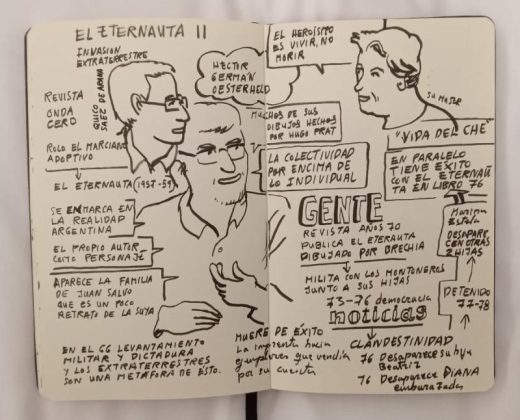 EL ETERNAUTA II
INVASION
EXTRATERRESTRE
REVISTA
ONDA
CERO
QUICO
SAEZ DE ARANA
ROLO EL MARCIANO
ADOPTIVO
EL ETERNAUTA (1957-59)
SE ENMARCA EN
LA REALIDAD
ARGENTINA
EL PROPIO AUTOR
COMO PERSONAJE
APARECE LA FAMILIA
DE JUAN SALVO
QUE ES UN POCO
RETRATO DE LA SUYA
EN EL 66 LEVANTAMIENTO
MILITAR Y DICTADURA
Y LOS EXTRATERRESTRES
SON UNA METÁFORA DE ESTO.
HECTOR
GERMAN
OESTERHELD
MUCHOS DE SUS
DIBUJOS HECHOS
POR HUGO PRAT
LA COLECTIVIDAD
POR ENCIMA DE
LO INDIVIDUAL
MUERE DE EXITO
La imprenta hacía
ejemplares que vendía
por su cuenta
EL HEROISMO
ES VIVIR, NO
MORIR
SU MUJER
"VIDA DEL CHE"
EN PARALELO
TIENE EXITO
CON EL ETERNAU
TA EN LIBRO 76
GENTE
REVISTA AÑOS 70
PUBLICA EL ETERAUTA
DIBUJADO POR BRECHIA
MILITA CON LOS MONTONEROS
JUNTO A SUS HIJAS
73-76 democracia
noticias
CLANDESTINIDAD
76 Desaparece su hija
Beatriz
76 Desaparece DIANA
embarazada
DETENIDO
77-78
Marina
Estela
DESAPARE
CEN OTRAS
2 HIJAS